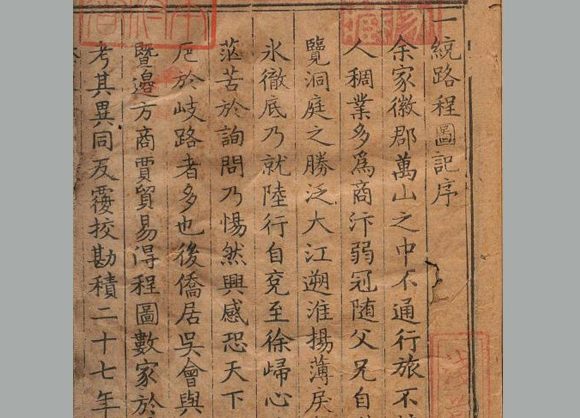 一統路程圖記序
余家徽郡萬山之中不通行旅不
人稠業多爲商汴弱冠随父兄自
覽洞庭之勝泛大江遡淮揚薄戾
氷徹底乃就陸行自兗至徐歸心
茫苦於詢問乃惕然興感恐天下
厄於岐路者多也後僑居吳會與
暨邊方商賈貿易得程圖數家於
考其異同反覆挍勘積二十七年